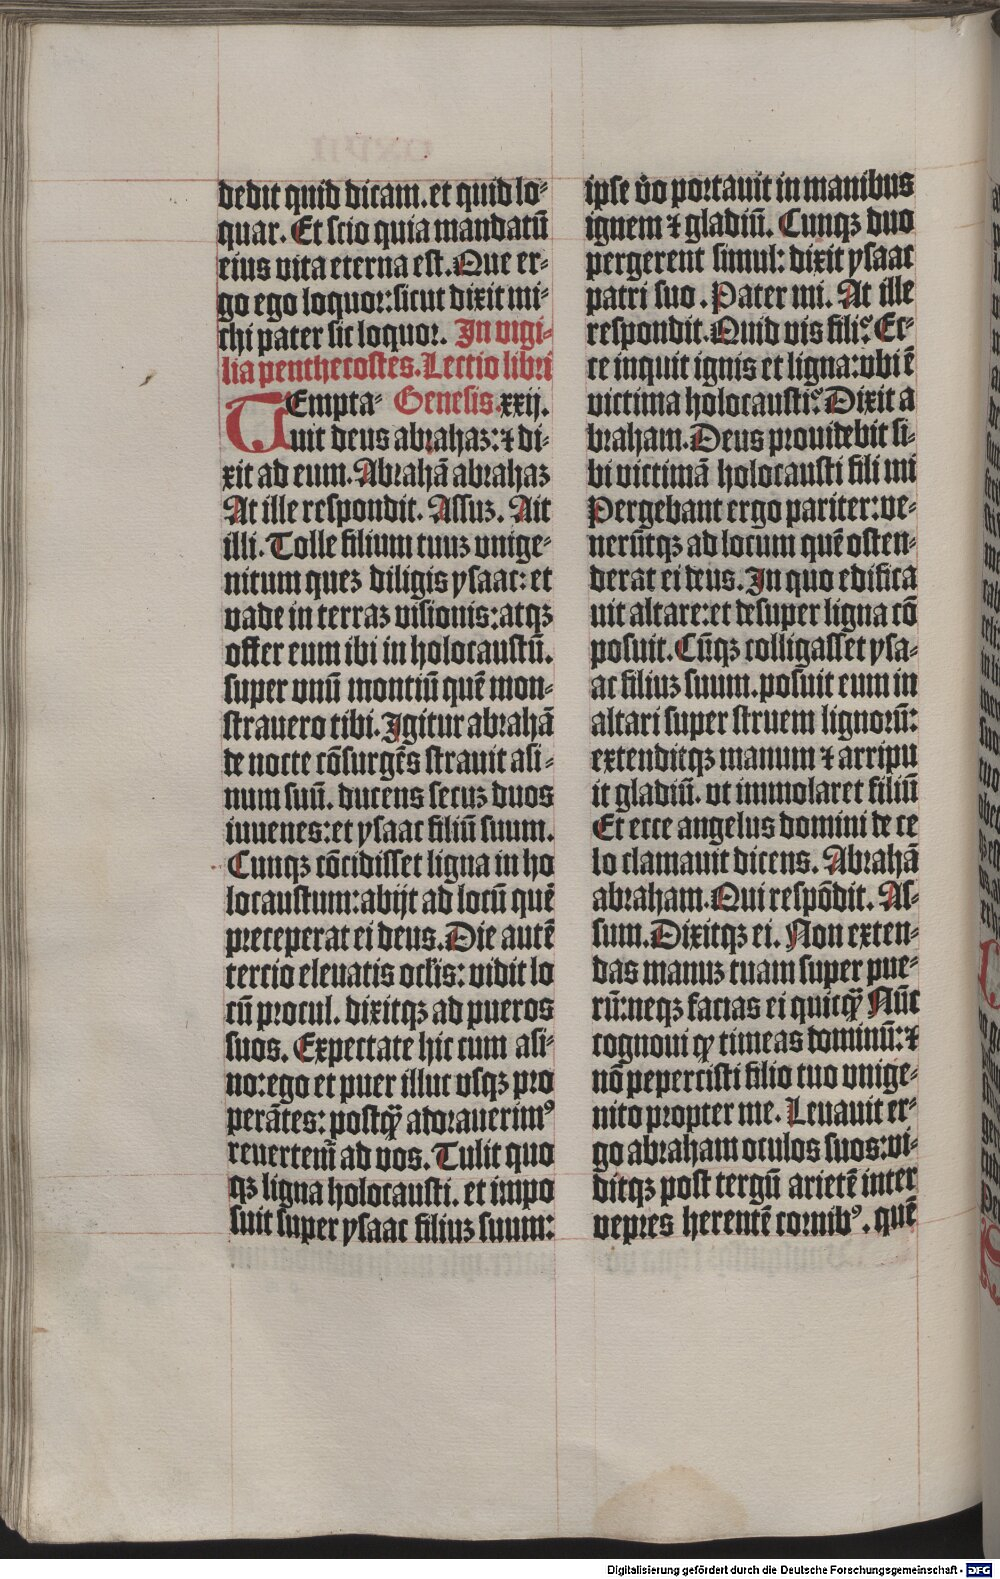 dedit quid dicam. et quid lo⸗
quar. Et scio quia mandatū
eius vita eterna est. Que er⸗
go ego loquor: sicut dixit mi⸗
chi pater sic loquor. In vigi⸗
lia penthecostes. Lectio libri
TEmpta⸗ Genesis. xxij.
uit deus abrahaꝫ: ⁊ di⸗
xit ad eum. Abrahā abrahaꝫ
At ille respondit. Assuꝫ. Ait
illi. Tolle filium tuuꝫ vnige⸗
nitum queꝫ diligis ysaac: et
vade in terraꝫ visionis: atqꝫ
offer eum ibi in holocaustū.
super vnū montiū quē mon⸗
strauero tibi. Igitur abrahā
de nocte cōsurgēs strauit asi⸗
num suū. ducens secuꝫ duos
iuuenes: et ysaac filiū suum.
Cunqꝫ cōcidisset ligna in ho
locaustum: abijt ad locū quē
preceperat ei deus. Die autē
tercio eleuatis oclis: vidit lo
cū procul. dixitqꝫ ad pueros
suos. Expectate hic cum asi⸗
no: ego et puer illuc vsqꝫ pro
perātes: postqꝙ adorauerimꝰ
reuertemͥ ad vos. Tulit quo
qꝫ ligna holocausti. et impo
suit super ysaac filiuꝫ suum:
ipse v̄o portauit in manibus
ignem ⁊ gladiū. Cunqꝫ duo
pergerent simul: dixit ysaac
patri suo. Pater mi. At ille
respondit. Quid vis fili? Ec⸗
ce inquit ignis et ligna: vbi ē
victima holocausti? Dixit a
braham. Deus prouidebit si⸗
bi victimā holocausti fili mi
Pergebant ergo pariter: ve⸗
nerūtqꝫ ad locum quē osten⸗
derat ei deus. In quo edifica
uit altare: et desuper ligna cō
posuit. Cūqꝫ colligasset ysa⸗
ac filiuꝫ suum. posuit eum in
altari super struem lignorū:
extenditqꝫ manum ⁊ arripu
it gladiū. vt immolaret filiū
Et ecce angelus domini de ce
lo clamauit dicens. Abrahā
abraham. Qui respōdit. As⸗
sum. Dixitqꝫ ei. Non exten⸗
das manuꝫ tuam super pue⸗
rū: neqꝫ facias ei quicqꝙ Nūc
cognoui ꝙ timeas dominū: ⁊
nō pepercisti filio tuo vnige⸗
nito propter me. Leuauit er⸗
go abraham oculos suos: vi⸗
ditqꝫ post tergū arietē inter
vepres herentē cornibꝰ. quē
Digitalisierung gefördert durch die Deutsche Forschungsgemeinschaft - DFG